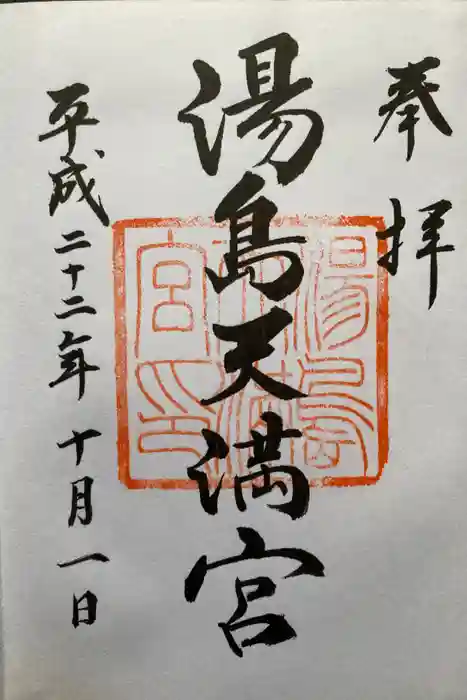 奉拝
湯島天満宮
平成二十二年十月一日
湯島
天満
宮印